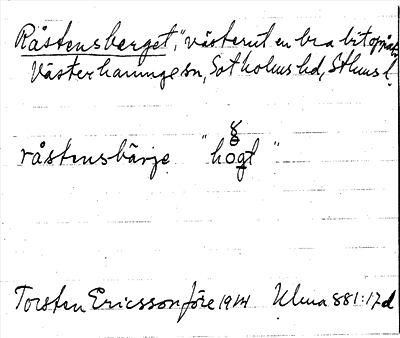 Råstensberget, "västerut en bra bit
Västerhaninge sn, Sotholms hd, Sthms l.
råstensbärje "högt"
Torsten Ericsson före 1914 Ulma 881:17d